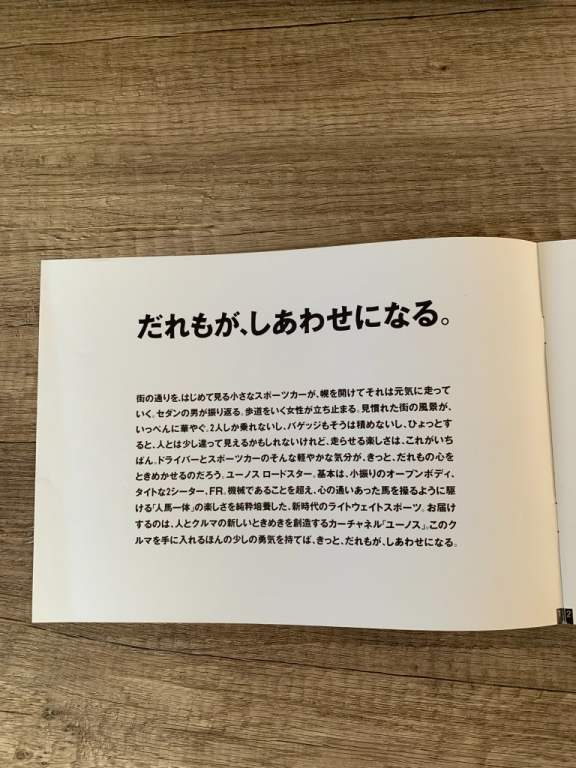 だれもが、しあわせになる。
街の通りを、はじめて見る小さなスポーツカーが、幌を開けてそれは元気に走って
いく。セダンの男が振り返る。歩道をいく女性が立ち止まる。見慣れた街の風景が、
いっぺんに華やぐ。2人しか乗れないし、バゲッジもそうは積めないし、ひょっとす
ると、人とは少し違って見えるかもしれないけれど、走らせる楽しさは、これがいち
ばん。ドライバーとスポーツカーのそんな軽やかな気分が、きっと、だれもの心を
ときめかせるのだろう。ユーノス ロードスター。基本は、小振りのオープンボディ、
タイトな2シーター、FR。機械であることを超え、心の通いあった馬を操るように駆
ける「人馬一体」の楽しさを純粋培養した、新時代のライトウェイトスポーツ。お届け
するのは、人とクルマの新しいときめきを創造するカーチャネル「ユーノス」。このク
ルマを手に入れるほんの少しの勇気を持てば、きっと、だれもが、しあわせになる。
2